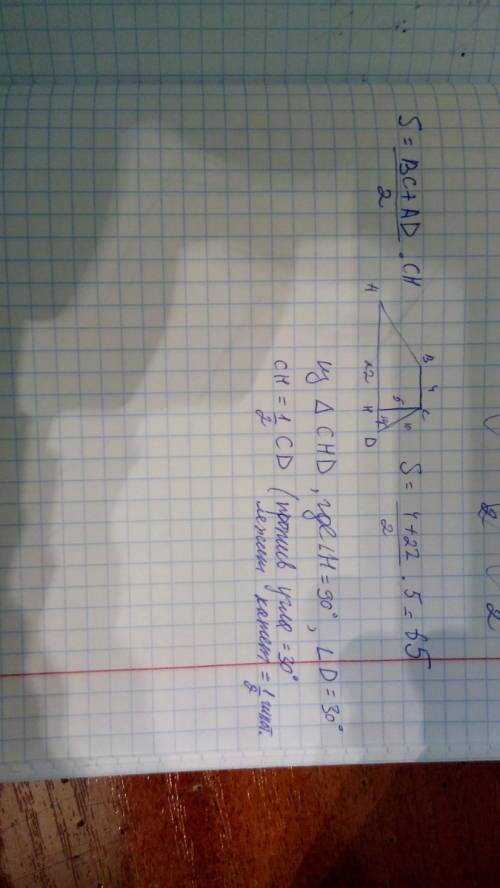 S = BC+AD/2 · CH
B 4 C
10
5
A 22 H D
S = 4+22/2 · 5 = 65
Из Δ CHD, где ∠H=90°, ∠D=30°
CH = 1/2 CD (против угла =30°
лежит катет = 1/2 гип.
2